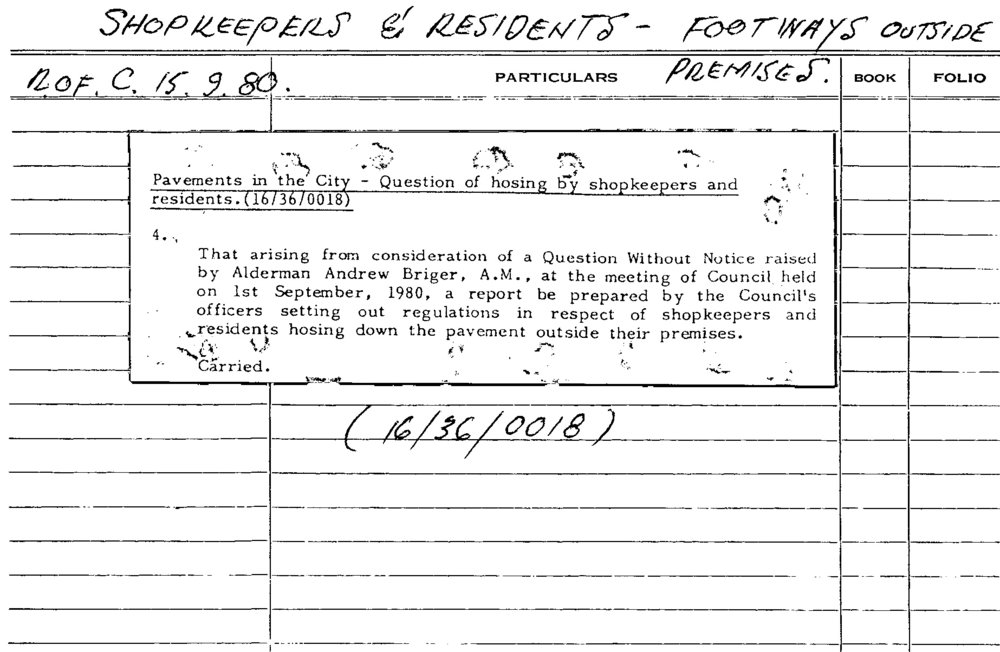 SHOPKEEPERS & RESIDENTS - FOOTWAYS OUTSIDE
PREMISES.
R OF. C. 15. 9. 80.
PARTICULARS
BOOK
FOLIO
Pavements in the City - Question of hosing by shopkeepers and
residents.(16/36/0018)
4.
That arising from consideration of a Question Without Notice raised
by Alderman Andrew Briger, A.M., at the meeting of Council held
on 1st September, 1980, a report be prepared by the Council's
officers setting out regulations in respect of shopkeepers and
residents hosing down the pavement outside their premises.
Carried.
(16/36/0018)